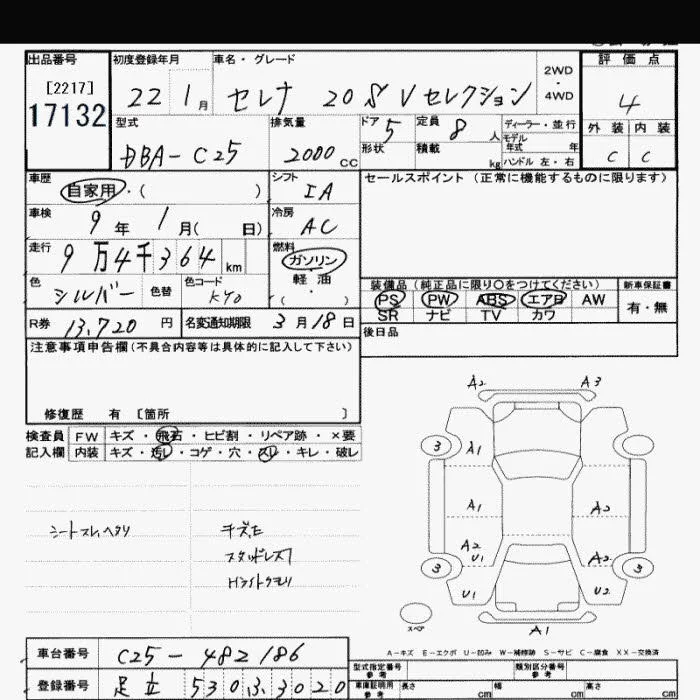 出品番号 初度登録年月 車名・グレード 評価点
[2217] 22 1月 セレナ 20S Vセレクション 2WD・4WD 4
17132 型式 排気量 ドア 5 定員 8人 ディーラー・並行 外装 内装
DBA-C25 2000cc 形状 積載 kg モデル年式 年 ハンドル 左・右 C C
車歴 自家用・( ) シフト IA セールスポイント(正常に機能するものに限ります)
車検 9年 1月( 日) 冷房 AC
走行 9万4千364km 燃料 ガソリン
軽・油
色 シルバー 色替 色コード KY0 ( ・ ) 装備品(純正品に限り○をつけてください) 新車保証書
PS PW ABS エアB AW 有・無
R券 13,720円 名変通知期限 3月18日 SR ナビ TV カワ
後日品
注意事項申告欄(不具合内容等は具体的に記入して下さい)
修復歴 有 [箇所 ]
検査員 FW キズ・飛石・ヒビ割・リペア跡・×要
記入欄 内装 キズ・汚レ・コゲ・穴・スレ・キレ・破レ
A2 A3
3 A1
A1 A2
A2 U1 A2
3 3
U1 U2
スペア A1
シートスレ、ヘタリ
スタッドレス
A-キズ E-エクボ U-凹み W-補修跡 S-サビ C-腐食 XX-交換済
車台番号 C25-482186 型式指定番号 参考 類別区分番号 参考
登録番号 足立 530 3 3020 車庫証明用 参考 長さ cm 幅 cm 高さ cm